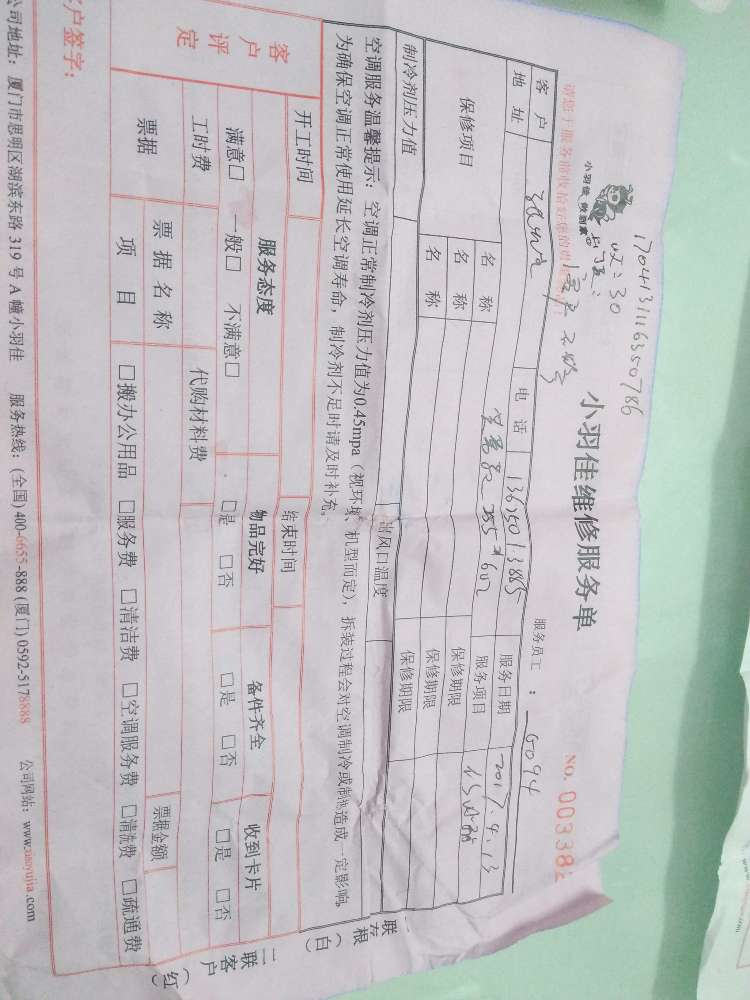 17041311116350786
收：30
小羽佳 做到家
小羽佳维修服务单
请您于服务前收拾好您的贵
服务员工：G094
NO. 003382
客户
电话
1365013885
服务日期
2017.4.13
地址
285#602
服务项目
保修项目
名称
保修期限
名称
保修期限
名称
保修期限
制冷剂压力值
出风口温度
空调服务温馨提示：空调正常制冷剂压力值为0.45mpa（视环境、机型而定），拆装过程会对空调制冷或制热造成一定影响。
为确保空调正常使用延长空调寿命，制冷剂不足时请及时补充。
一联存根（白）
二联客户（红）
开工时间
结束时间
客户评定
服务态度
物品完好
备件齐全
收到卡片
满意□ 一般□ 不满意□
□是 □否
□是 □否
□是 □否
工时费
代购材料费
票据
票据名称
票据金额
项目
□搬办公用品 □服务费 □清洁费 □空调服务费 □清洗费 □疏通费
客户签字：
公司地址：厦门市思明区湖滨东路 319 号 A 幢小羽佳 服务热线：(全国) 400-6655-888 (厦门) 0592-5178888 公司网站：www.xiaoyujia.com